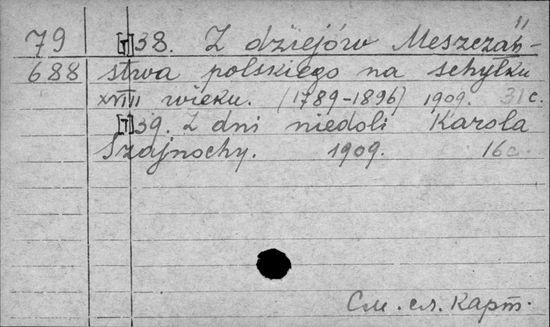 79 [т]38. Z dziejów Meszczań-
688 stwa polskiego na schyłku
XVIII wieku. (1789-1896) 1909. 31 c.
[т]39. Z dni niedoli Karola
Szajnochy. 1909. 16 c.
См. сл. карт.